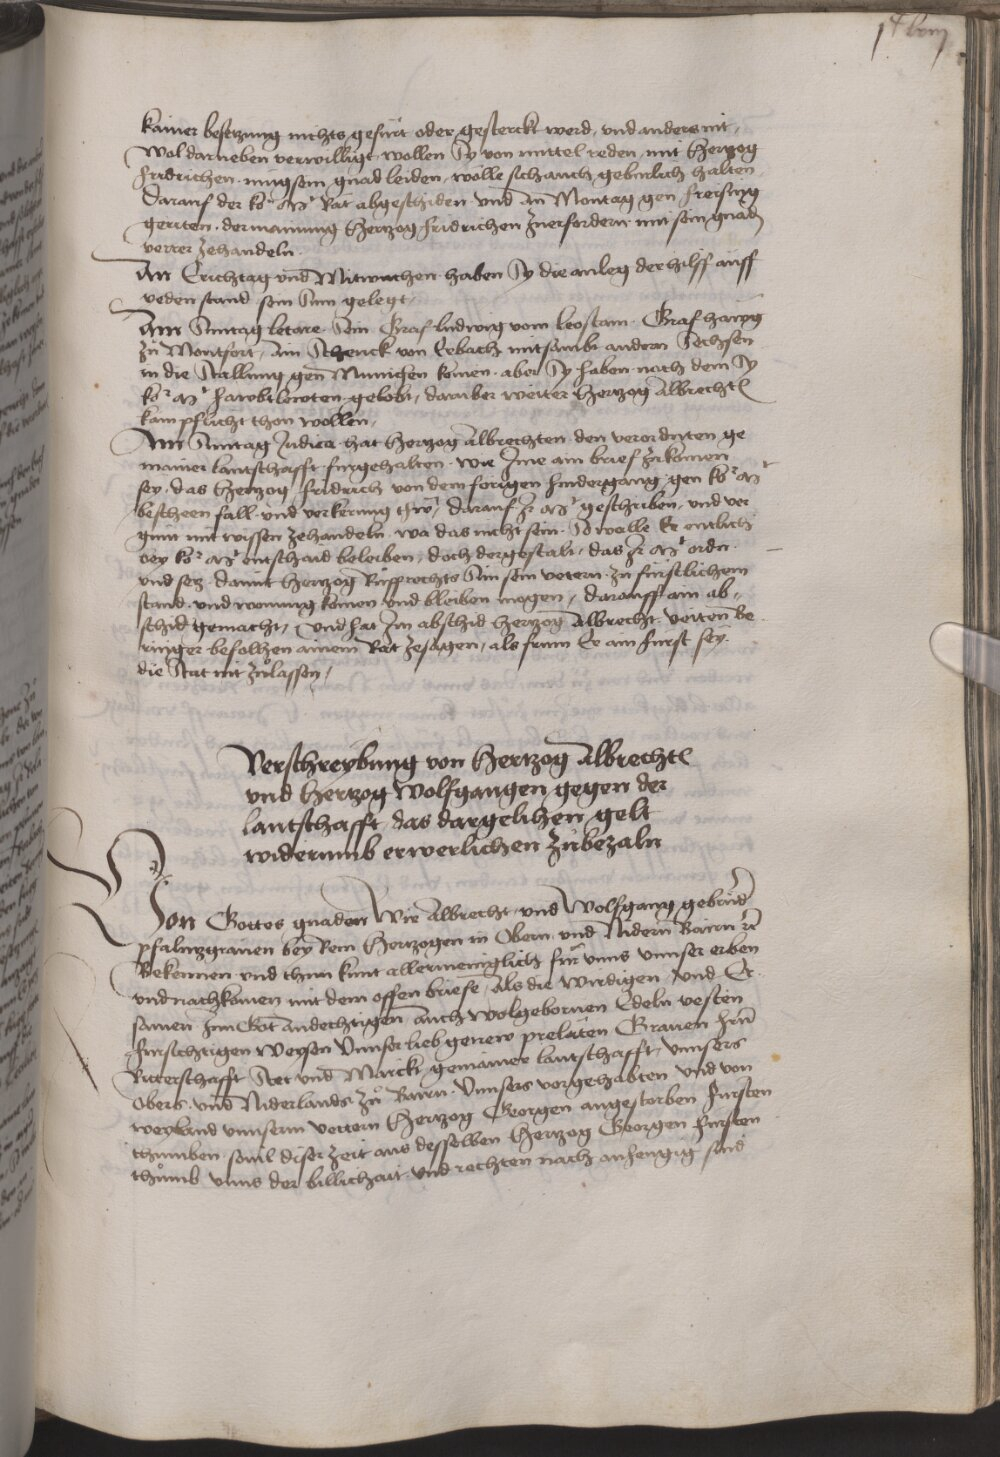 kainer besetzung nichts gefürt oder gesterckt werd, vnd anders nit,
wol darneben verwilligt, wollen Sy von mittel reden, mit Hertzog
Fridrichen. mug sein gnad leiden, wolle sich auch gebürlich halten
Darauf der ko.r M.t Rät abgeschiden vnd am Montag gen Freising
geriten. der mainung Hertzog Fridrichen zuerfordern mit sein gnad
verrer zehandeln.
Am Erichtag vnd Mitwuchen haben Sy die anleg der hilff auff
yeden stand sein Sum gelegt,
Am Sonntag letare. Sein Graf Ludwig vom Leostain. Graf Haug
zu Montfort, ain Schenck von Erbach mitsambt andern Sechsen
in die Stallung gen Munichen komen. aber Sy haben nach dem Sy
ko.r M.t haubtleuten gelobt, daruber weiter Hertzog Albrecht
kain pflicht thon wollen,
Am Sonntag Judica hat Hertzog Albrechten den verordnten ge
mainer lantschafft furgehalten. wie Ime ain brief zukomen
sey. das Hertzog Fridrich von dem forigen hindergang gen ko.r M.t
bescheen fall. vnd verkerung thue, darauf Ir M.t geschriben, vnd ver
gunn mit wissen zehandeln. wa das nicht sein. So wolle Er entlich
bey ko.r M.t entschaid beleiben, doch dergestalt, das Ir M.t ordn
vnd setz. damit Hertzog Rupprechts Sün sein vetern. zu fürstlichem
stand. vnd wonung komen vnd bleiben mogen, darauff ain ab,
schid gemacht, Vnd hat Im abschid Hertzog Albrecht. veiten be
ringer befolhen ainem Rät zesagen, als frum Er ain Furst sey.
die Stat nit zulassen,
Verschreybung von Hertzog Albrecht
vnd Hertzog Wolfgangen gegen der
lantschafft, das dargelihen gelt
widerumb erwerlichen zubezaln
Von Gottes gnaden Wir Albrecht vnd Wolfgang gebrüd
pfaltzgrauen bey Rein Hertzogen in Obern vnd Nidern Bairn etc
Bekennen vnd thun kunt allermeniglich für vnns vnnser erben
vnd nachkomen mit dem offen briefe, Als die wirdigen vnd Er
samen Inn Got andechtigen auch Wolgebornen Edeln vesten
fursichtigen Weysen Vnnser lieb getrew prelaten Grauen hern
Ritterschafft Stet vnd Märckt gemainer lantschafft, vnnsers
Obers vnd Niderlands zu Bairn. Vnnsers vorgehabten vnd von
weylend vnnserm vettern Hertzog Georgen angestorben Fursten
thumben. souil diser zeit aus desselben Hertzog Georgen Fursten
thumb vnns der billichait vnd rechten nach anhengig sind